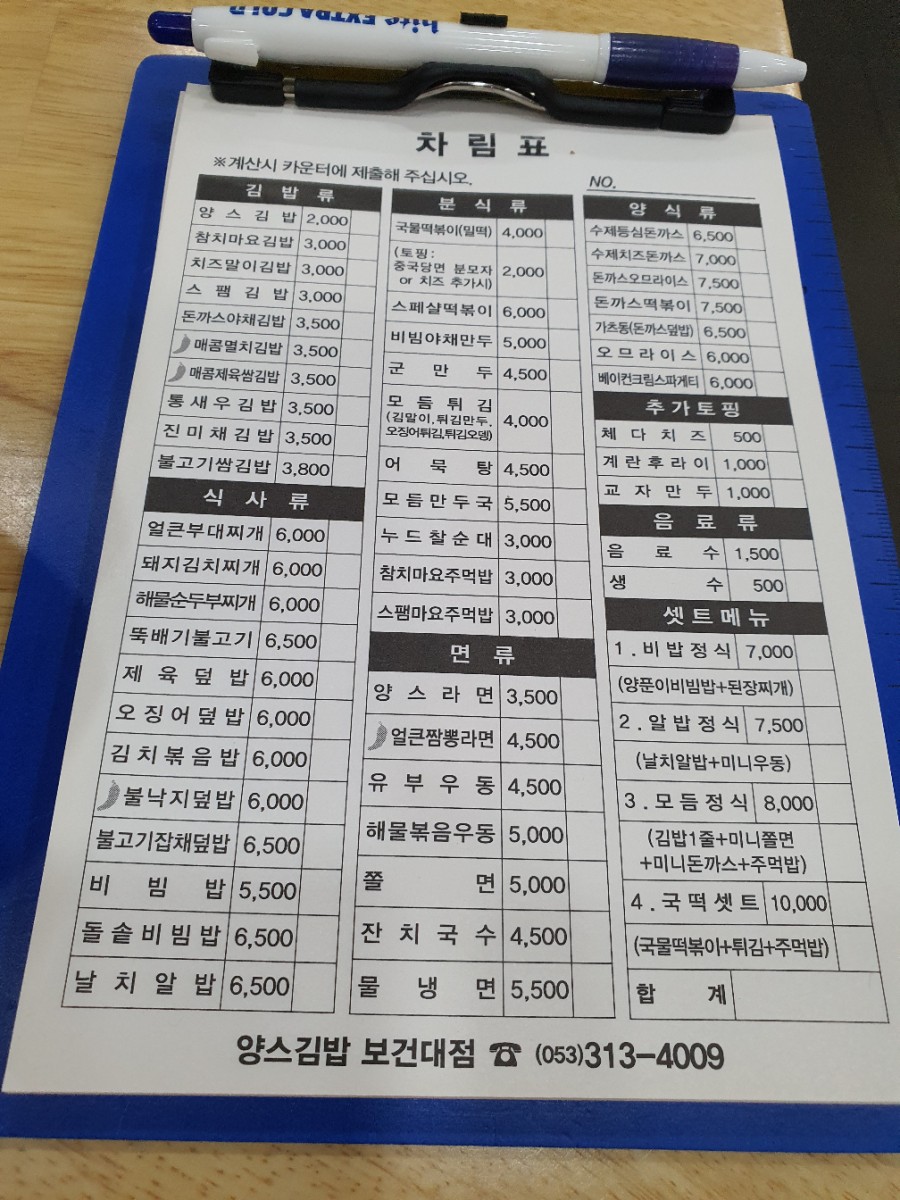 hite EXTRA COLD
차 림 표
※계산시 카운터에 제출해 주십시오.
NO.
김 밥 류
양 스 김 밥 2,000
참치마요김밥 3,000
치즈말이김밥 3,000
스 팸 김 밥 3,000
돈까스야채김밥 3,500
매콤멸치김밥 3,500
매콤제육쌈김밥 3,500
통 새 우 김 밥 3,500
진 미 채 김 밥 3,500
불고기쌈김밥 3,800
식 사 류
얼큰부대찌개 6,000
돼지김치찌개 6,000
해물순두부찌개 6,000
뚝배기불고기 6,500
제 육 덮 밥 6,000
오 징 어 덮 밥 6,000
김 치 볶 음 밥 6,000
불낙지덮밥 6,000
불고기잡채덮밥 6,500
비 빔 밥 5,500
돌 솥 비 빔 밥 6,500
날 치 알 밥 6,500
분 식 류
국물떡볶이(밀떡) 4,000
(토핑:
중국당면 분모자 2,000
or 치즈 추가시)
스페샬떡볶이 6,000
비빔야채만두 5,000
군 만 두 4,500
모 듬 튀 김 4,000
(김말이,튀김만두,
오징어튀김,튀김오뎅)
어 묵 탕 4,500
모 듬 만 두 국 5,500
누 드 찰 순 대 3,000
참치마요주먹밥 3,000
스팸마요주먹밥 3,000
면 류
양 스 라 면 3,500
얼큰짬뽕라면 4,500
유 부 우 동 4,500
해물볶음우동 5,000
쫄 면 5,000
잔 치 국 수 4,500
물 냉 면 5,500
양 식 류
수제등심돈까스 6,500
수제치즈돈까스 7,000
돈까스오므라이스 7,500
돈까스떡볶이 7,500
가츠동(돈까스덮밥) 6,500
오 므 라 이 스 6,000
베이컨크림스파게티 6,000
추 가 토 핑
체 다 치 즈 500
계 란 후 라 이 1,000
교 자 만 두 1,000
음 료 류
음 료 수 1,500
생 수 500
셋 트 메 뉴
1 . 비 밥 정 식 7,000
(양푼이비빔밥+된장찌개)
2 . 알 밥 정 식 7,500
(날치알밥+미니우동)
3 . 모 듬 정 식 8,000
(김밥1줄+미니쫄면
+미니돈까스+주먹밥)
4 . 국 떡 셋 트 10,000
(국물떡볶이+튀김+주먹밥)
합 계
양스김밥 보건대점 ☎ (053)313-4009